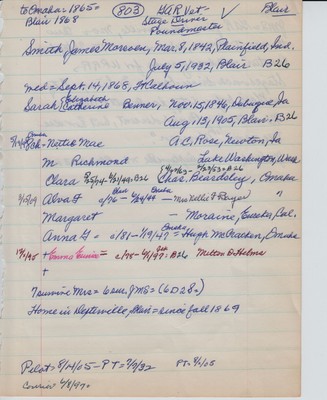 to Omaha 1865= (803) GAR Vet- ✓ Blair
Blair 1868 Stage Driver
Poundmaster
Smith, James Moreson, Mar. 8, 1842, Plainfield, Ind.
July 5, 1932, Blair B26
med = Sept. 14, 1868, Ft Calhoun
Sarah Elizabeth Catherine Denner, Nov. 15, 1846, Debuque, Ia
Aug. 13, 1905, Blair, B26
Ch- Nettie Mae A.C. Rose, Newton, Ia
m Richmond Lake Washington, Wash
Clara Chas. Beardsley, Omaha
Alva G c/76 - Mrs Nellie F Royer "
Margaret - Moraine, Eureka, Cal.
Anna G = c/81-1/9/47 = Hugh McCracken, Omaha
+ Emma Eunice = B26 Milton D Helms
+
7 survive Mrs = 6 sur. JMS = (6D2S=)
Home in Deyterville, Blair = since fall 1869
Pilot = 8/14/05 - PT = 7/7/32 PT =
Courier 4/8/97=